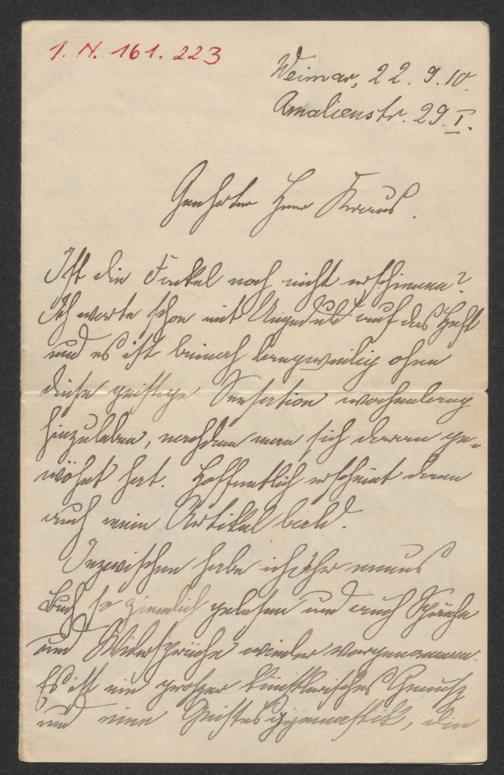 I. N. 161.223
Weimar, 22.9.10.
Amalienstr. 29 I.
Geehrter Herr Kraus.
Ist die Fackel noch nicht erschienen?
Ich warte schon mit Ungeduld auf das Heft
und es ist beinah langweilig ohne
diese geistige Sensation wochenlang
hinzuleben, nachdem man sich daran ge-
wöhnt hat. Hoffentlich erscheint dann
auch mein Artikel bald.
Inzwischen habe ich Ihr neues
Buch so ziemlich gelesen und auch Sprüche
und Widersprüche wieder vorgenommen.
Es ist ein großer künstlerischer Genuß
und eine Geistesgymnastik, die